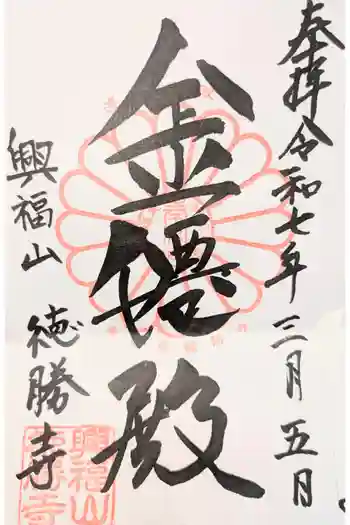 奉拝 令和七年 三月 五日
金僊殿
興福山 徳勝寺
興福山
徳勝寺